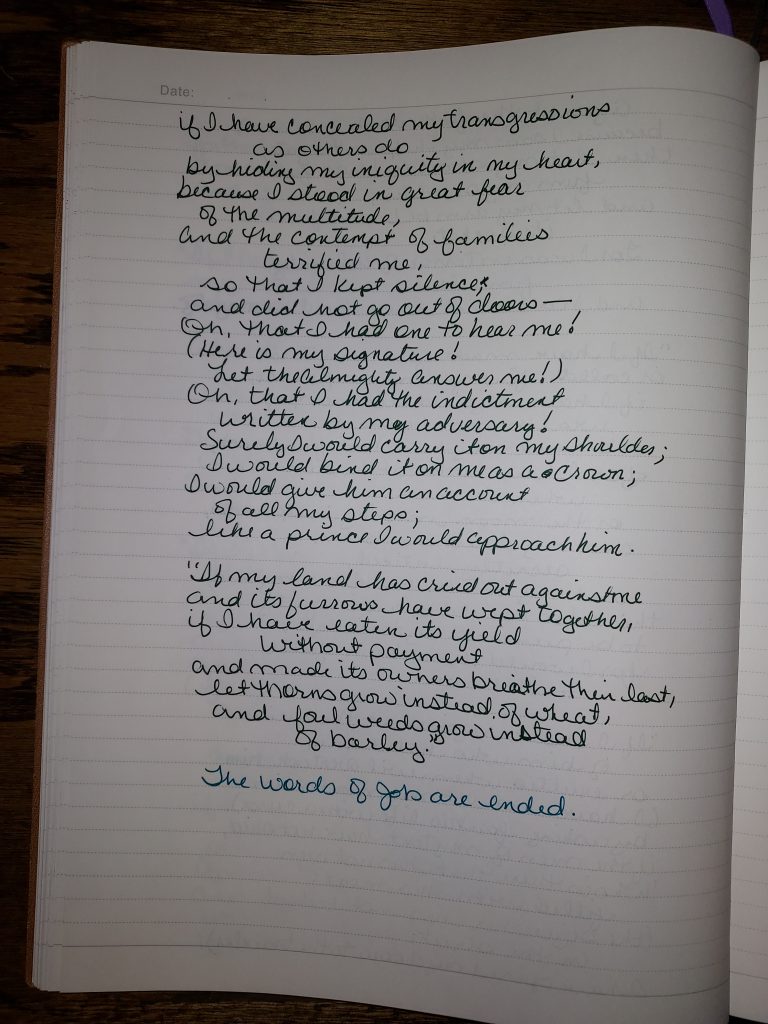 Date:
if I have concealed my transgressions
as others do
by hiding my iniquity in my heart,
because I stood in great fear
of the multitude,
and the contempt of families
terrified me,
so that I kept silence,
and did not go out of doors—
Oh, that I had one to hear me!
(Here is my signature!
Let the Almighty answer me!)
Oh, that I had the indictment
written by my adversary!
Surely I would carry it on my shoulder;
I would bind it on me as a crown;
I would give him an account
of all my steps;
like a prince I would approach him.
"If my land has cried out against me
and its furrows have wept together,
if I have eaten its yield
without payment
and made its owners breathe their last,
let thorns grow instead of wheat,
and foul weeds grow instead
of barley."
The words of Job are ended.